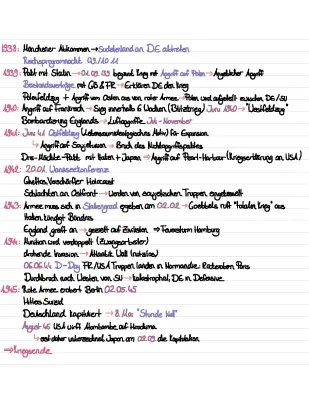 1938: Münchener Abkommen → Sudetenland an DE abtreten
Reichspogromnacht 09./10.11
1939: Pakt mit Stalin → 01.09.39 beginnt Krieg mit Angriff auf Polen → Angeblicher Angriff
Beistandsverträge mit GB & FR → Erklären DE den Krieg
Polenfeldzug + Angriff von Osten aus von roter Armee → Polen wird aufgeteilt zwischen DE/SU
1940: Angriff auf Frankreich → Sieg innerhalb 6 Wochen (Blitzkrieg) Juni 1940 → "Westfeldzug"
Bombardierung Englands → Luftangriffe Juli - November
1941: Juni 41 Ostfeldzug (Lebensraumideologisches Motiv) für Expansion
↳ Angriff auf Sowjetunion → Bruch des Nichtangriffspaktes
Drei-Mächte-Pakt mit Italien + Japan → Angriff auf Pearl-Harbour (Kriegserklärung an USA)
1942: 20.01. Wannseekonferenz
Ghettos, Holocaust
Schlachten an Ostfront → werden von sowjetischen Truppen eingekesselt
1943: Armee muss sich in Stalingrad ergeben am 02.02 → Goebbels ruft "totalen Krieg" aus
Italien kündigt Bündnis
England greift an → gezielt auf Zivilisten → Feuersturm Hamburg
1944: Munition wird verdoppelt (Zwangsarbeiter)
drohende Invasion → Atlantik Wall (nutzlos)
06.06.44 D-Day FR/USA Truppen landen in Normandie: Rückeroben, Paris
Durchbruch nach Westen von SU → katastrophal, DE in Defensive
1945: Rote Armee erobert Berlin 02.05.45
Hitlers Suizid
Deutschland kapituliert → 8. Mai "Stunde Null"
August 45 USA wirft Atombombe auf Hiroshima
↳ erst daher unterzeichnet Japan am 02.09. die Kapitulation
⇒ Kriegsende